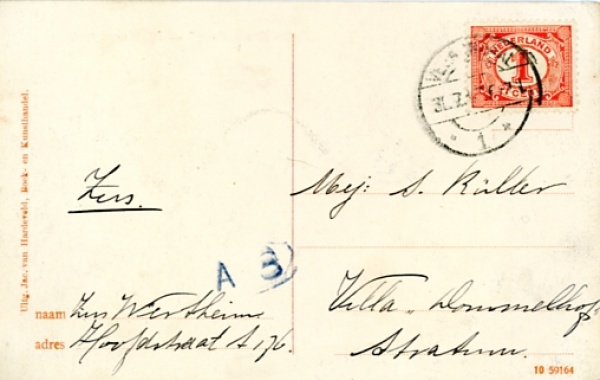 NEDERLAND
1
CENT
31.7.
1
Uitg. Jac. van Hardeveld, Boek- en Kunsthandel.
Zus.
A B
naam Zus Wertheim
adres Hoofdstraat A 176.
Mej: S. Küller
Villa "Dommelhof"
Stratum.
10 59164